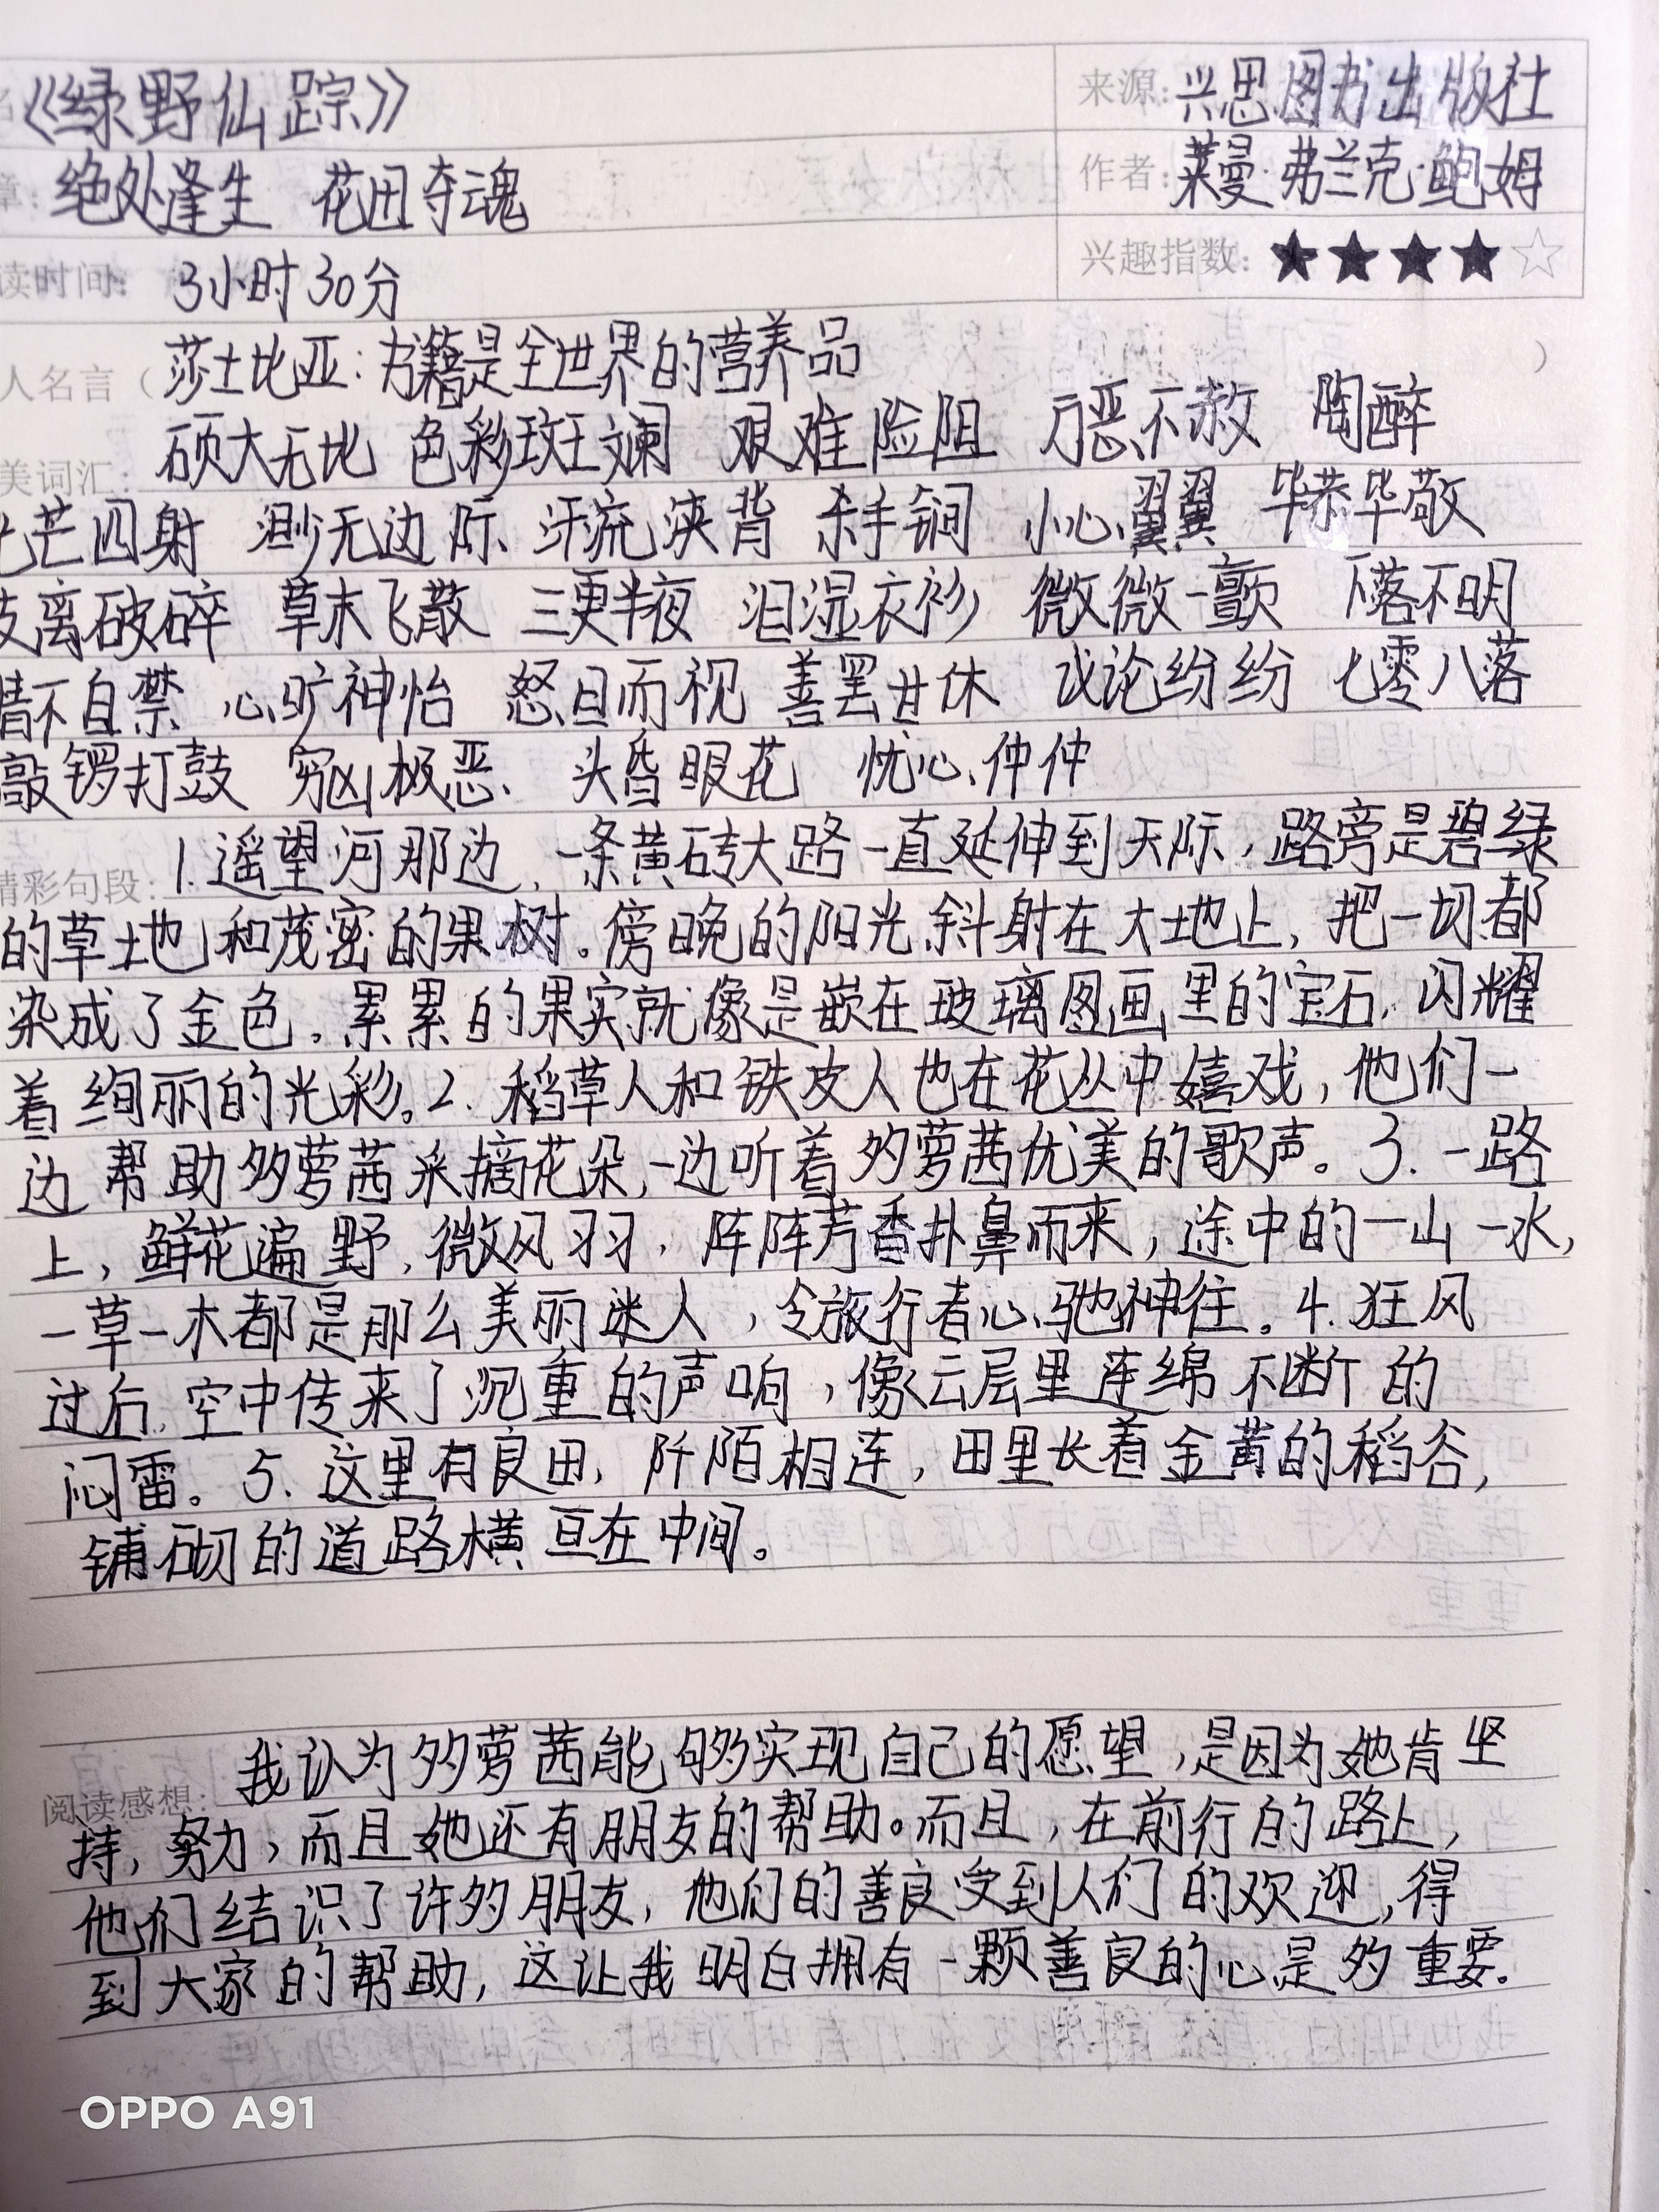 《绿野仙踪》 来源: 兴思图书出版社
章: 绝处逢生 花田夺魂 作者: 莱曼·弗兰克·鲍姆
读时间: 3小时30分 兴趣指数: ★★★★☆
人名言（莎士比亚: 书籍是全世界的营养品 ）
美词汇: 硕大无比 色彩斑斓 艰难险阻 万恶不赦 陶醉
光芒四射 渺无边际 汗流浃背 杀手锏 小心翼翼 毕恭毕敬
支离破碎 草木飞散 三更半夜 泪湿衣衫 微微一颤 下落不明
情不自禁 心旷神怡 怒目而视 善罢甘休 议论纷纷 七零八落
敲锣打鼓 穷凶极恶 头昏眼花 忧心忡忡
精彩句段: 1.遥望河那边,一条黄砖大路一直延伸到天际,路旁是碧绿
的草地和茂密的果树。傍晚的阳光斜射在大地上,把一切都
染成了金色。累累的果实就像是嵌在玻璃图画里的宝石,闪耀
着绚丽的光彩。2.稻草人和铁皮人也在花丛中嬉戏,他们一
边帮助多萝茜采摘花朵,一边听着多萝茜优美的歌声。3.一路
上,鲜花遍野,微风习习,阵阵芳香扑鼻而来,途中的一山一水,
一草一木都是那么美丽迷人,令旅行者心驰神往。4.狂风
过后,空中传来了沉重的声响,像云层里连绵不断的
闷雷。5.这里有良田,阡陌相连,田里长着金黄的稻谷,
铺砌的道路横亘在中间。
阅读感想: 我认为多萝茜能够实现自己的愿望,是因为她肯坚
持,努力,而且她还有朋友的帮助。而且,在前行的路上,
他们结识了许多朋友,他们的善良受到人们的欢迎,得
到大家的帮助,这让我明白拥有一颗善良的心是多重要。
OPPO A91